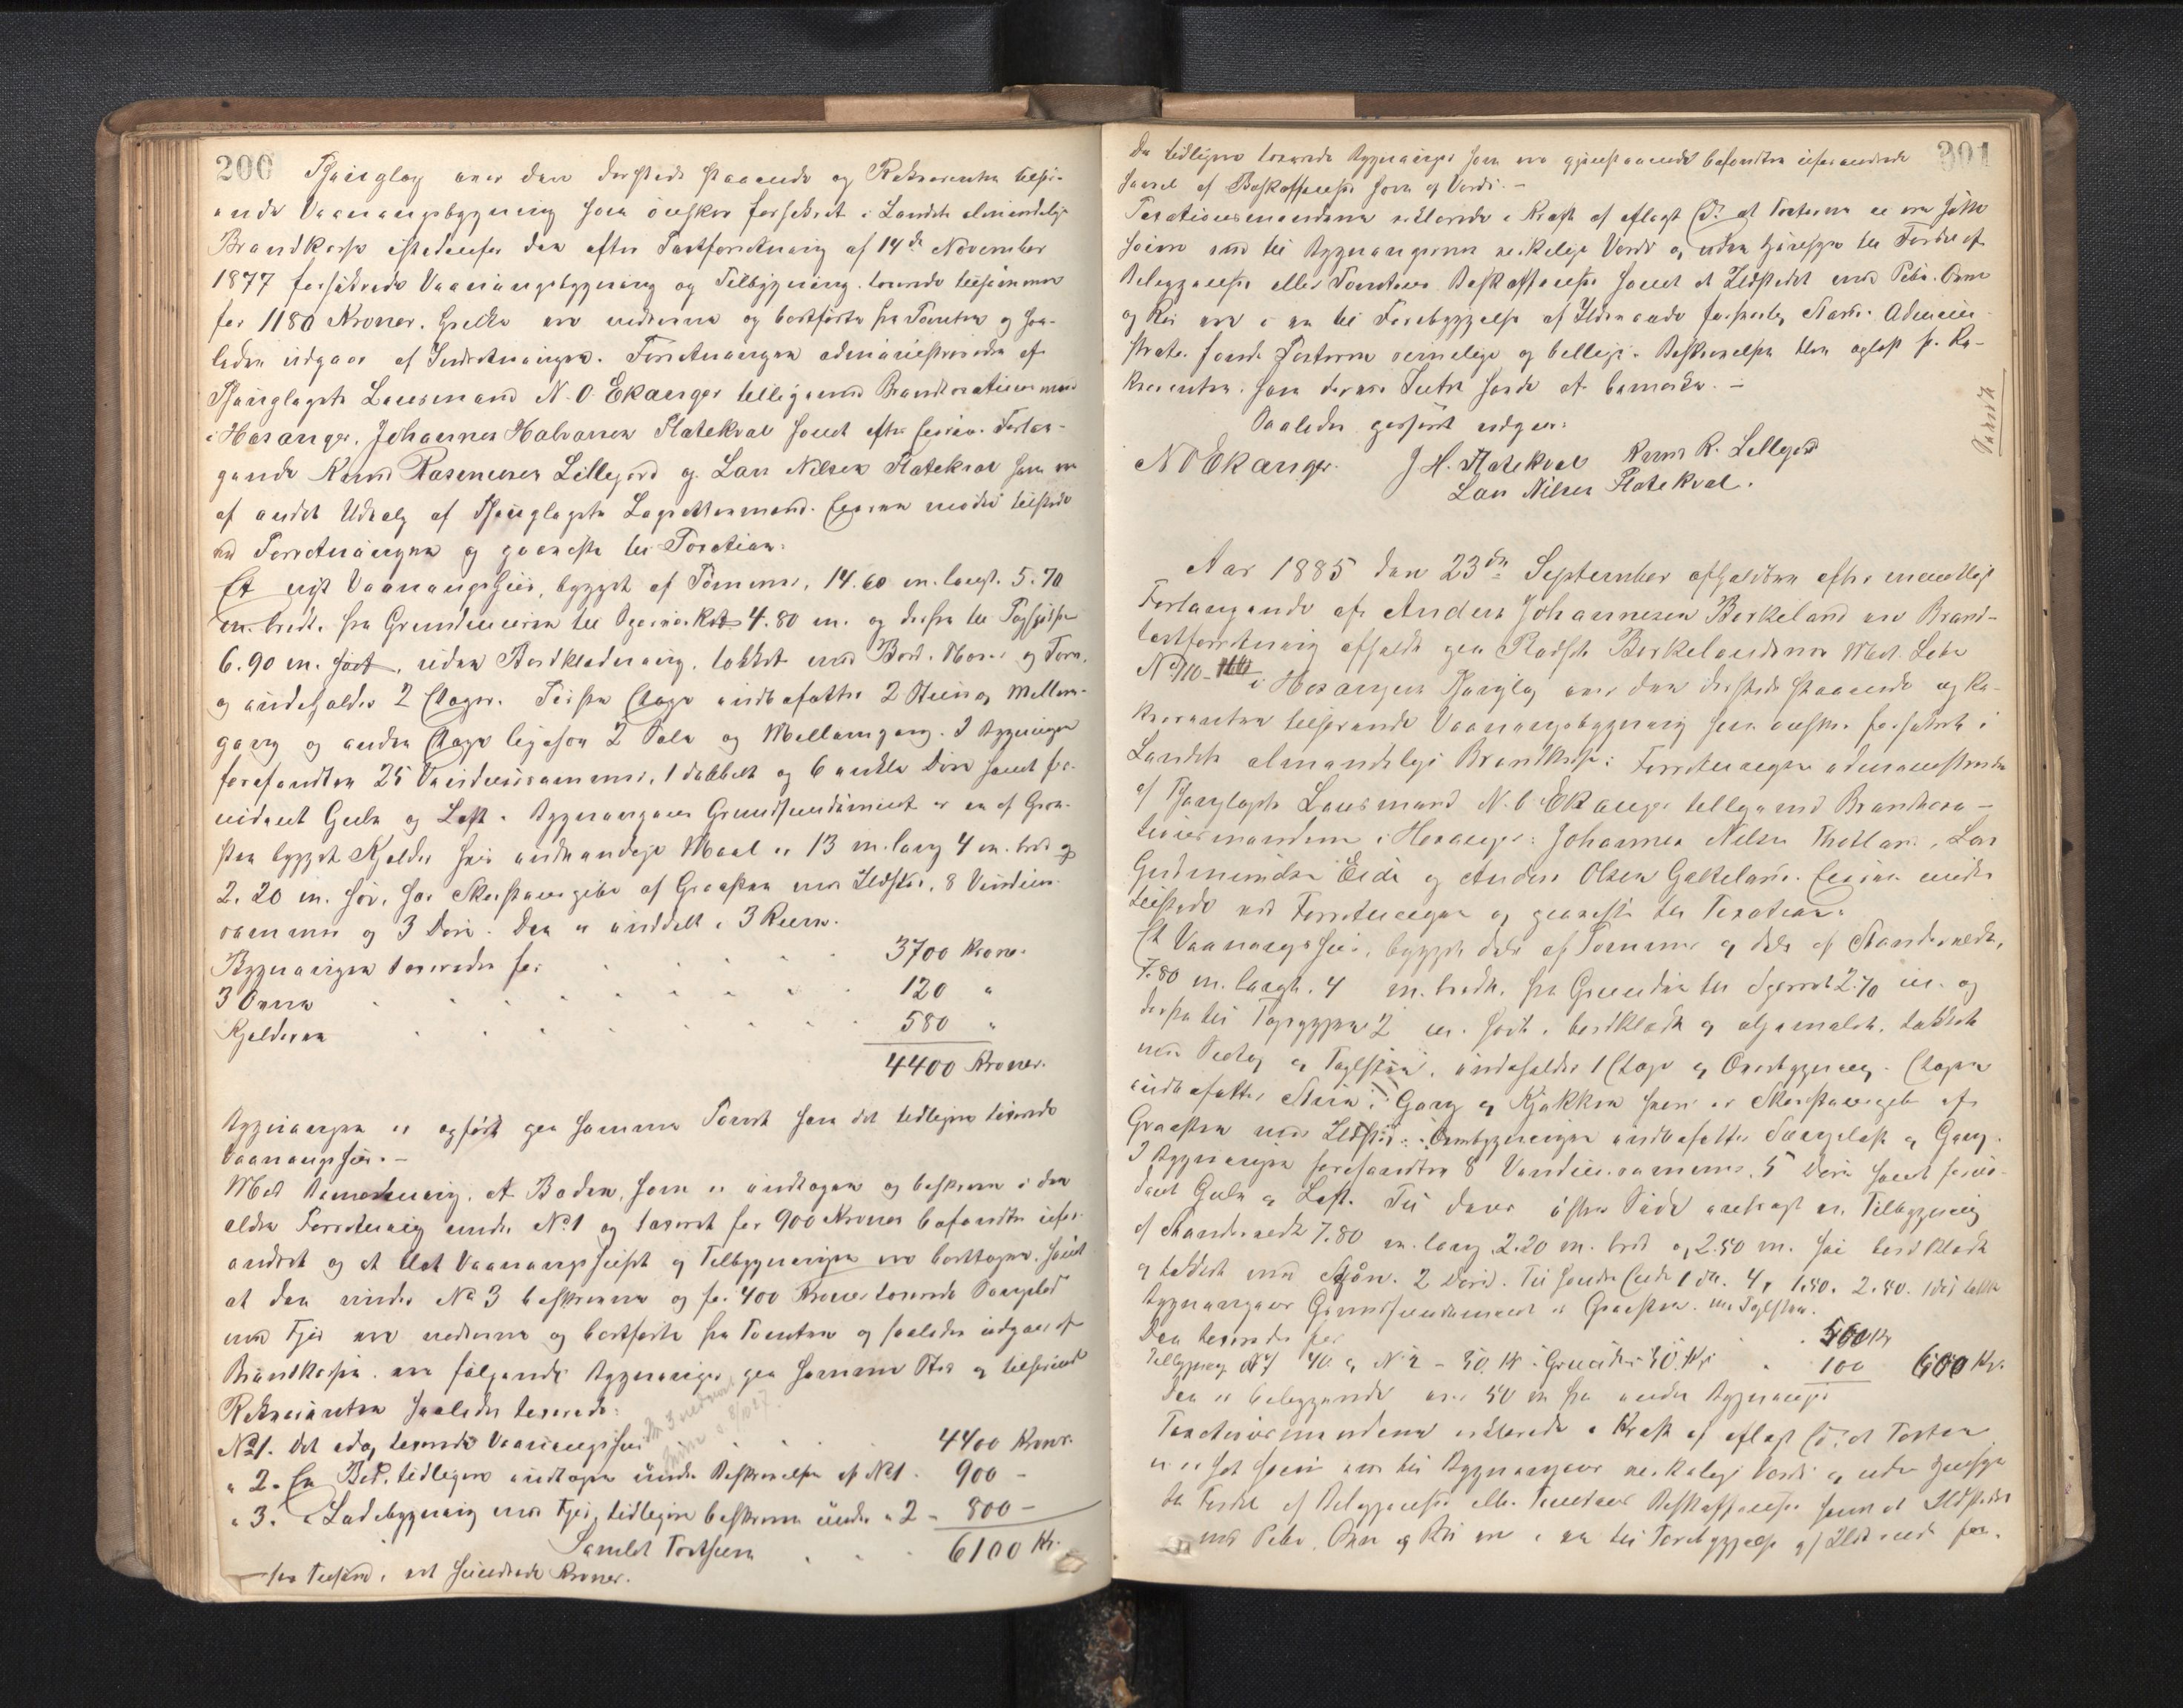 200
Thinglag over den dersteds staaende og Rekvirenten tilhö-
rende Vaaningsbygning som önskes forsikret i Landets almindelige
Brandkasse istedenfor den efter Taxtforretning af 14de November
1877 forsikrede Vaaningsbygning og Tilbygning, taxerede tilsammen
for 1180 Kroner, hvilke ere nedrevne og bortförte fra Tomten og saa-
ledes udgaar af Indretningen. Forretningen administreredes af
Thinglagets Lensmand N. O. Ekanger tilligemed Brandtaxationsmand
i Hosanger, Johannes Halvorsen Flatekval samt efter Eierens Forlan-
gende Knud Rasmussen Lillejord og Lars Nilsen Flatekval som er
af andet Udvalg af Thinglagets Lagrettesmænd. Eieren mödte tilstede
ved Forretningen og paaviste til Taxation:
Et nyt Vaaningshus, bygget af Tömmer, 14.60 m. langt, 5.70
m. bredt, fra Grundmuren til Ogerne 4.80 m. og derfra til Tagspidsen
6.90 m. höit, uden Bordklædning, tækket med Bord, Næver og Torv,
og indeholder 2 Etager. Förste Etage indbefatter 2 Stuer og Mellem-
gang og anden Etage ligesom 2 Sale og Mellemgang. I Bygningen
forefandtes 25 Vindusrammer, 1 dobbelt og 6 enkle Döre samt for-
nödent Gulv og Loft. Bygningens Grundfundament er en af Graa-
sten bygget Kjelder hvis indvendige Maal er 13 m. lang 4 m. bred og
2.20 m. höi, har Skorstenspibe af Graasten med Ildsted, 8 Vindus-
rammer og 3 Döre. Den er inddelt i 3 Rum.
Bygningen taxeredes for . . . . . 3700 Kroner.
3 Ovne . . . . . . . . . 120 "
Kjelderen . . . . . . . . 580 "
4400 Kroner.
Bygningen er opfört paa samme Tomt som det tidligere taxerede
Vaaningshus. —
Med Bemærkning, at Boden, som er indtagen og beskreven i den
ældre Forretning under No 1 og taxeret for 900 Kroner befandtes ufor-
andret og at det Vaaningshuset og Tilbygningen ere borttagne, samt
at den under No 3 beskrevne og for 400 Kroner taxerede Sauflor
med Fjös ere nedrevne og bortförte fra Tomten og saaledes udgaar af
Brandkassen, ere fölgende Bygninger paa samme Sted og tilhörende
Rekvirenten saaledes taxerede:
No 1. Det idag taxerede Vaaningshus . . . . . 4400 Kroner.
" 2. En Bod, tidligere indtagen under Beskrivelsen af No 1 . 900 —
" 3. " Ladebygning med Fjös, tidligere beskreven under " 2 — 800 —
Samlet Taxtsum . . . 6100 Kr.
— sex Tusind, et hundrede Kroner.
301
De tidligere taxerede Bygninger som ere gjenstaaende befandtes uforandrede
saavel af Beskaffenhed som af Værdi. —
Taxationsmændene erklærede i Kraft af aflagt Ed at Taxterne ei ere satte
höiere end til Bygningernes virkelige Værdi og uden Hensyn til Fordel af
Beliggenhed eller Tomtens Beskaffenhed samt at Ildstedet med Pibe, Ovne
og Rör ere i en til Forebyggelse af Ildsvaade forsvarlig Stand. Admini-
strator fandt Taxterne rimelige og billige. Beskrivelsen blev oplæst for Re-
kvirenten som dermed Intet havde at bemærke. —
Saaledes passeret udgives:
N O Ekanger. J. H. Flatekval Knud R. Lillejord
Lars Nilsen Flatekval.
Aar 1885 den 23de September afholdtes efter mundtlig
Forlangende af Anders Johannesen Berkeland en Brand-
taxtforretning afholdt paa Pladsen Berkelandsno Mat. Löbe
No 110 i Hosangers Thinglag over den dersteds staaende og Re-
kvirenten tilhörende Vaaningsbygning som önskes forsikret i
Landets almindelige Brandkasse. Forretningen administreredes
af Thinglagets Lensmand N. O. Ekanger tilligemed Brandtaxa-
tionsmændene i Hosanger: Johannes Nilsen Totland, Lars
Gudmundsen Eide og Anders Olsen Gaketland. Eieren mödte
tilstede ved Forretningen og paaviste til Taxation:
Et Vaaningshus, bygget dels af Tömmer og dels af Standerverk,
7.80 m. langt, 4 m. bredt, fra Grunden til Ogerne 2.70 m. og
derfra til Tagryggen 2 m. höit, bordklædt og oljemalet, tækket
med Sutag og Taglsten, indeholder 1 Etage og Overbygning. Etagen
indbefatter Stue, Gang og Kjökken hvori er Skorstenspibe af
Graasten med Ildsted. Overbygningen indbefatter Sængeloft og Gang.
I Bygningen forefandtes 8 Vindusrammer, 5 Döre samt fornö-
dent Gulv og Loft. Til dens östre Side anbragt en Tilbygning
af Standerverk 7.80 m. lang 2.20 m. bred og 2.50 m. höi bordklædt
og tækket med Spön. 2 Döre. Til söndre Ende 1 do. 4, 1.50. 2.50.
Bygningens Grundfundament er Graasten. med Taglsten.
Den taxeredes for . 500 Kr
Tilbygning No 1 40 og No 2 - 30 Kr. Grunden 30 Kr. . 100 600 Kr.
Den er beliggende over 50 m fra andre Bygninger
Taxationsmændene erklærede i Kraft af aflagt Ed, at Taxten
ei er sat höiere end til Bygningens virkelige Værdi og uden Hensyn
til Fordel af Beliggenhed eller Tomtens Beskaffenhed samt at Ildstedet
med Pibe, Ovn og Rör ere i en til Forebyggelse af Ildsvaade for-